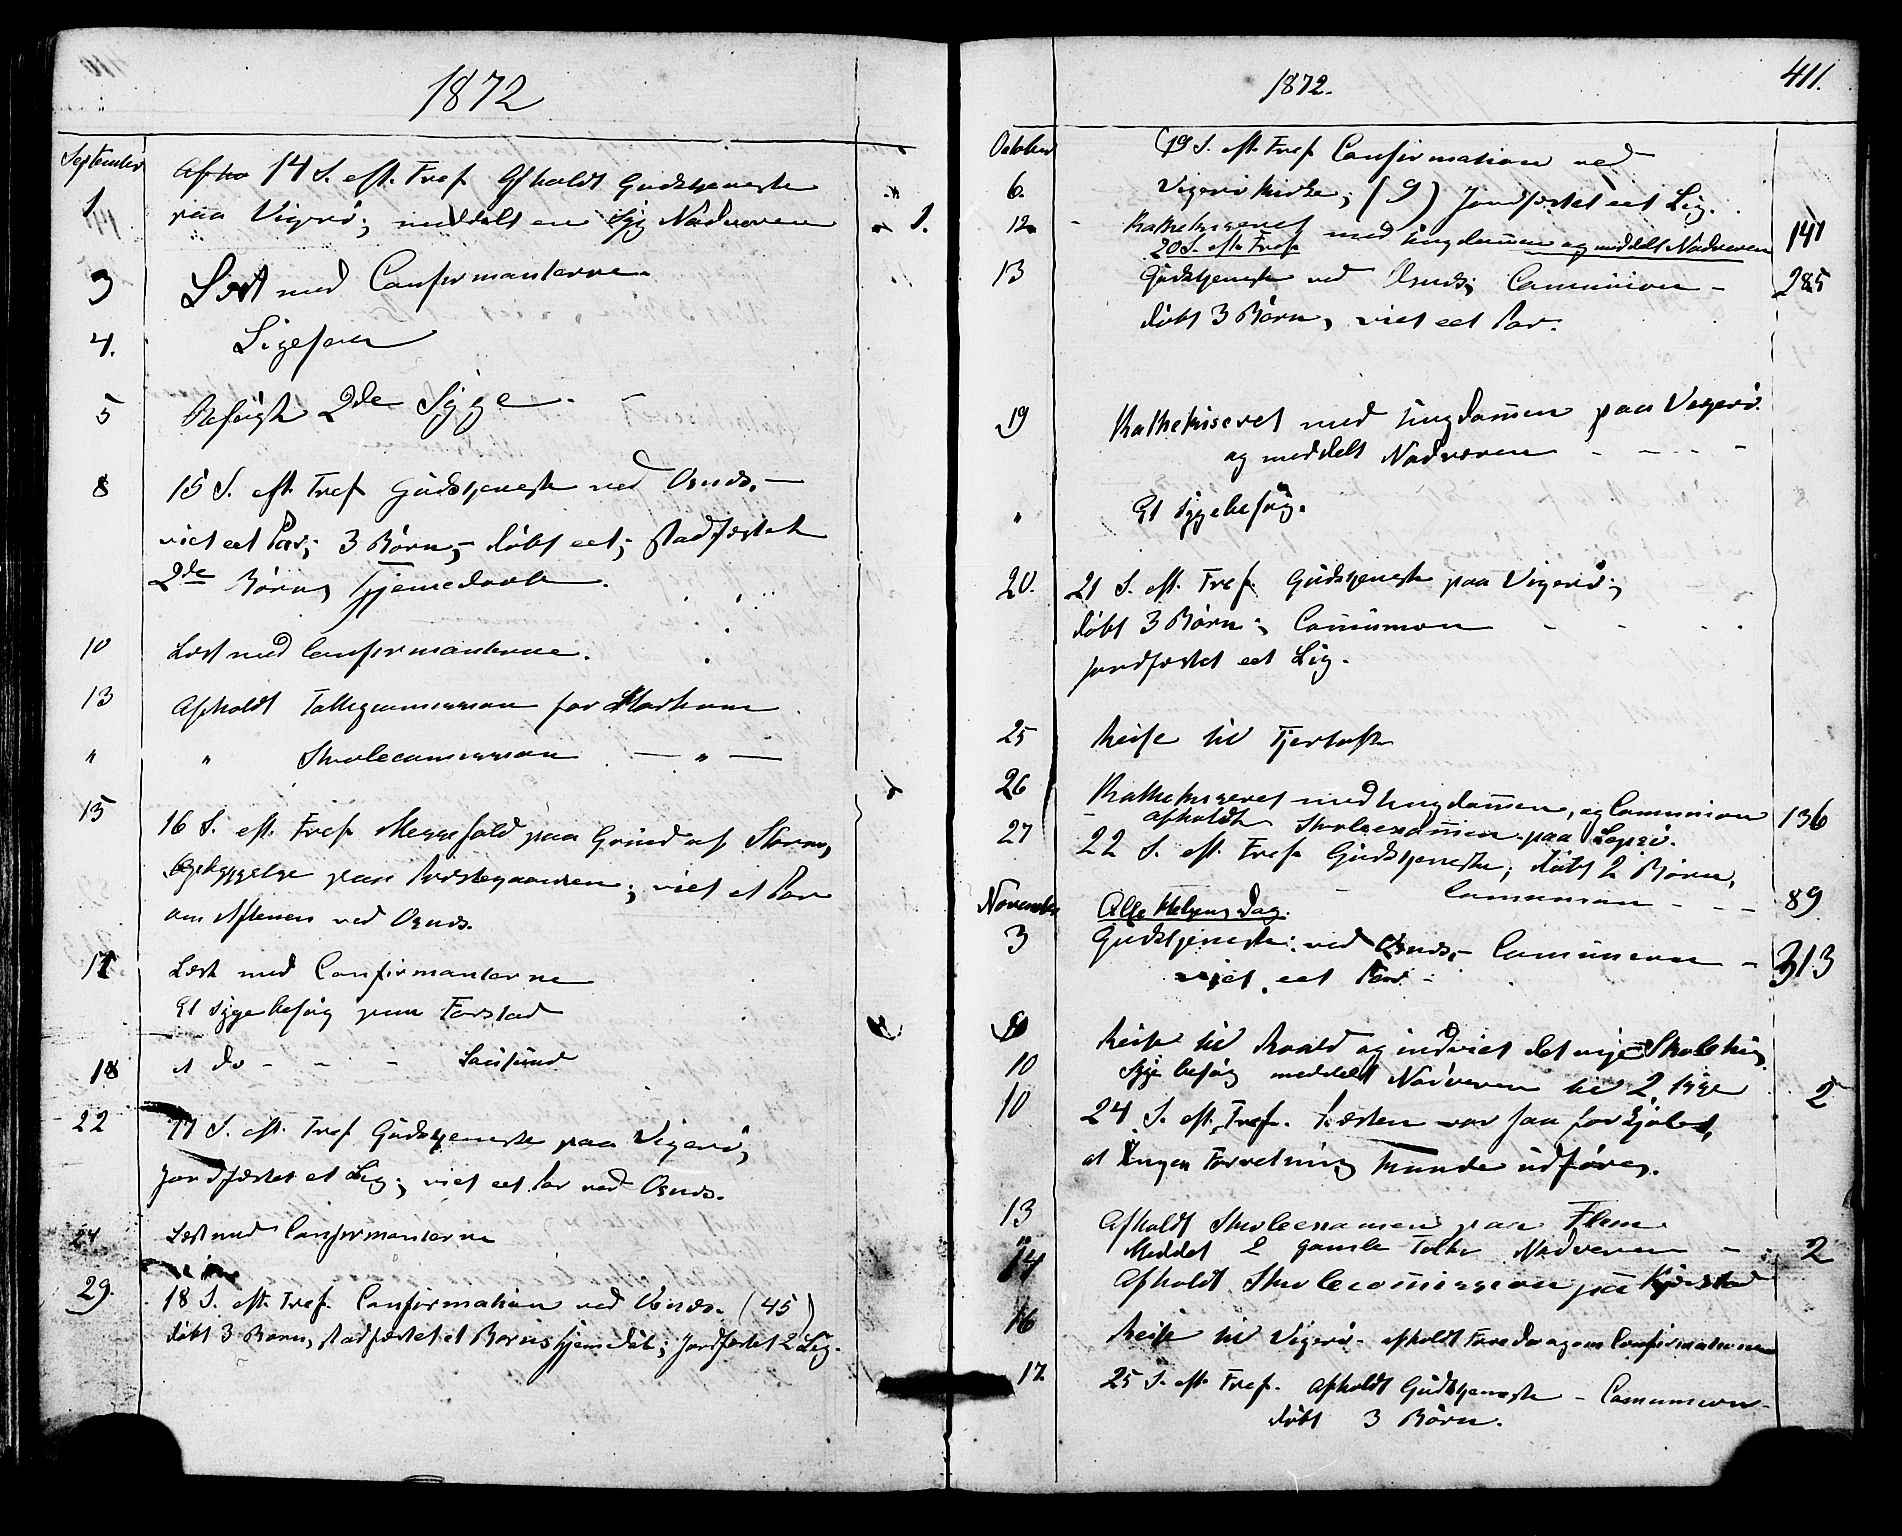 1872
September
1 Afho 14 S. eft. Tref Afholdt Gudstjeneste
paa Vigerø; meddelt en Syg Nadveren 1.
3 Læst med Confirmanterne
4. Ligesaa
5 Besøgt 2de Syge
8 15 S. eft. Tref Gudstjeneste ved Osnæs. —
viet eet Par; 3 Børn, døbt eet; stadfæstet
2de Børns Hjemedaab.
10 Læst med Confirmanterne.
13 Afholdt Fattigcomission for Harham
" " Skolecomission — " —
15 16 S. eft. Tref Messefald paa Grund af Storm,
paa Præstegaarden; viet et Par
om Aftenen ved Osnæs.
17 Læst med Confirmanterne
Et Sygebesøg paa Farstad
18 et do - - -
22 17 S. eft. Tref Gudstjeneste paa Vigerø,
Jordfæstet et Lig; viet eet Par ved Osnæs.
24 Læst med Confirmanterne
29. 18 S. eft. Tref. Confirmation ved Osnæs. (45)
døbt 3 Børn, stadfæstet et Børns Hjemedåb; Jordfæstet 2 Lig.
1872.
411.
October 19 S. eft. Tref Confirmation ved
6. Vigerø Kirke; (9) Jordfæstet eet Lig.
12 Kathekiseret med Ungdomen og meddelt Nadveren 141
20 S. eft. Tref
13 Gudstjeneste ved Osnæs; Comunion - 285
døbt 3 Børn, viet eet Par.
19 Kathekiseret med Ungdomen paa Vigerø
og meddelt Nadveren - - - -
" Et Sygebesøg.
20. 21 S. eft. Tref. Gudstjeneste paa Vigerø;
døbt 3 Børn; Comunion - - - -
jordfæstet eet Lig.
25 Reise til Fjertoft
26 Kathekiseret med Ungdomen, og Comunion 136
afholdt Skoleexamen paa Lepsø.
27 22 S. eft. Tref Gudstjeneste, døbt 2 Børn,
Comunion - - - 89
November Alle Helgens Dag.
3 Gudstjeneste ved Osnæs, - Comunion - 313
viet eet Par -
Reise til Roald og indviet det nye Skolehus
10 Sygebesøg meddelt Nadveren til 2 Syge 2
10 24 S. eft. Tref. Præsten var saa forkjølet,
at Ingen Forretning kunde udføres.
13 Afholdt Skoleexamen paa Flem
" Meddelt 2 gamle Folk Nadveren - 2
14 Afholdt Skolecomission paa Kjerstad
16 Reise til Vigerø - afholdt Foredrag om Confirmationen
17 25 S. eft. Tref. Afholdt Gudstjeneste - Comunion -
døbt 3 Børn.